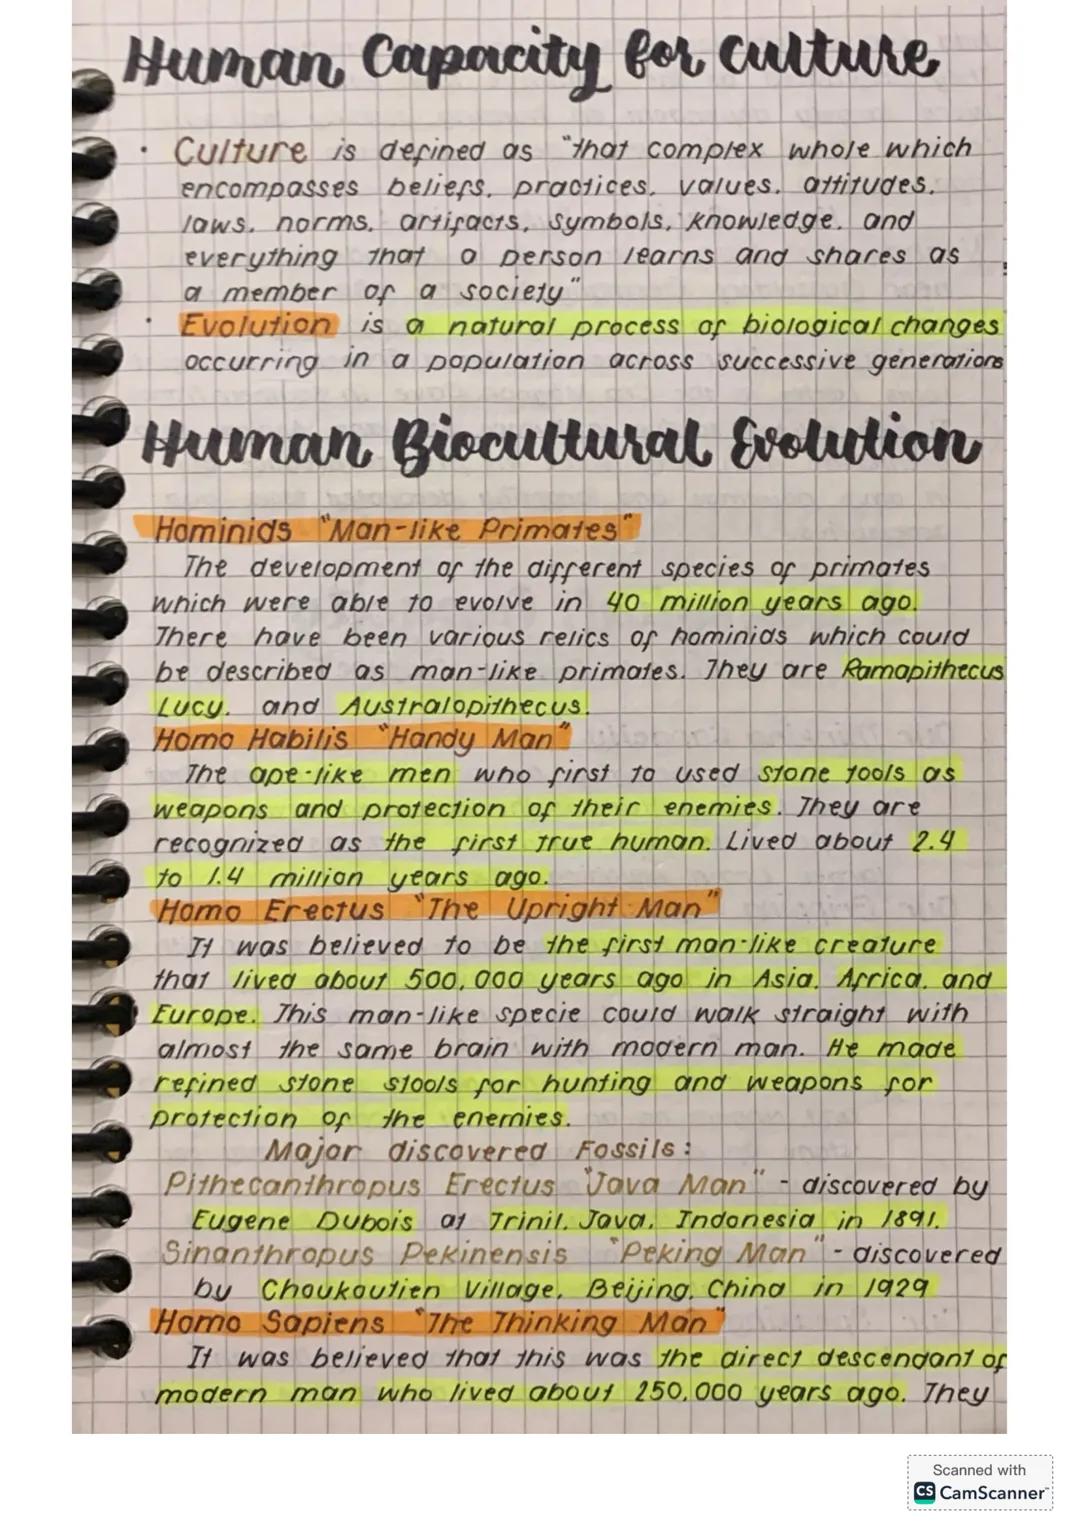 Human Capacity for culture
• Culture is defined as "that complex whole which
encompasses beliefs, practices, values, attitudes,
laws, norms, artifacts, symbols, knowledge, and
everything that a person learns and shares as
a member of a society"
• Evolution is a natural process of biological changes
occurring in a population across successive generations
Human Biocultural Evolution
Hominids "Man-like Primates"
The development of the different species of primates
which were able to evolve in 40 million years ago.
There have been various relics of hominids which could
be described as man-like primates. They are Ramapithecus
Lucy, and Australopithecus.
Homo Habilis "Handy Man"
The ape-like men who first to used stone tools as
weapons and protection of their enemies. They are
recognized as the first true human. Lived about 2.4
to 1.4 million years ago.
Homo Erectus "The Upright Man"
It was believed to be the first man-like creature
that lived about 500,000 years ago in Asia, Africa, and
Europe. This man-like specie could walk straight with
almost the same brain with modern man. He made
refined stone stools for hunting and weapons for
protection of the enemies.
Major discovered Fossils:
Pithecanthropus Erectus "Java Man" - discovered by
Eugene Dubois at Trinil, Java, Indonesia in 1891.
Sinanthropus Pekinensis "Peking Man" - discovered
by Choukoutien Village, Beijing, China in 1929
Homo Sapiens "The Thinking Man"
It was believed that this was the direct descendant of
modern man who lived about 250,000 years ago. They
Scanned with
CS CamScanner